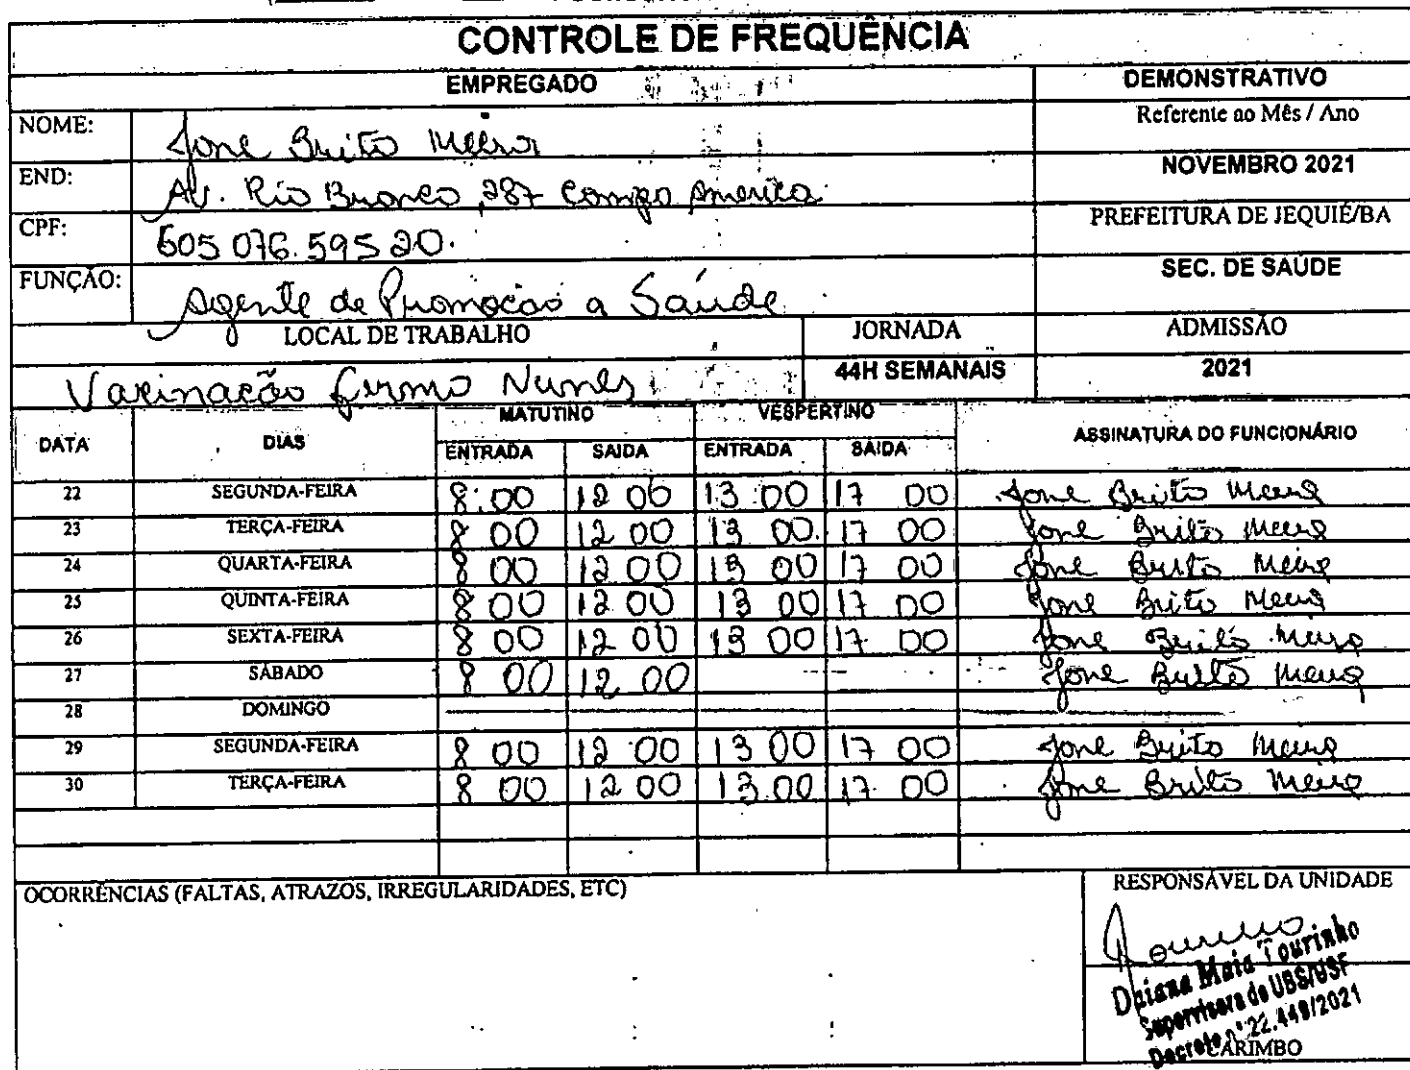 CONTROLE DE FREQUÊNCIA
EMPREGADO
DEMONSTRATIVO
NOME: Jone Brito Meira
Referente ao Mês / Ano
END: Av. Rio Branco, 287 Campo America
NOVEMBRO 2021
CPF: 605 076.595 20.
PREFEITURA DE JEQUIÉ/BA
FUNÇÃO: Agente de Promocao a Saúde
SEC. DE SAÚDE
LOCAL DE TRABALHO JORNADA ADMISSÃO
Vacinação Firmo Nunes 44H SEMANAIS 2021
DATA DIAS MATUTINO VESPERTINO ASSINATURA DO FUNCIONÁRIO
ENTRADA SAIDA ENTRADA SAIDA
22 SEGUNDA-FEIRA 8:00 12 00 13:00 17 00 Jone Brito Meira
23 TERÇA-FEIRA 8 00 12 00 13 00 17 00 Jone Brito Meira
24 QUARTA-FEIRA 8 00 12 00 13 00 17 00 Jone Brito Meira
25 QUINTA-FEIRA 8 00 12 00 13 00 17 00 Jone Brito Meira
26 SEXTA-FEIRA 8 00 12 00 13 00 17 00 Jone Brito Meira
27 SÁBADO 8 00 12 00 Jone Brito Meira
28 DOMINGO
29 SEGUNDA-FEIRA 8 00 12 00 13 00 17 00 Jone Brito Meira
30 TERÇA-FEIRA 8 00 12 00 13 00 17 00 Jone Brito Meira
OCORRÊNCIAS (FALTAS, ATRAZOS, IRREGULARIDADES, ETC)
RESPONSÁVEL DA UNIDADE
Daiana Maia Tourinho
Supervisora de UBS/USF
Decreto nº 22.449/2021
CARIMBO